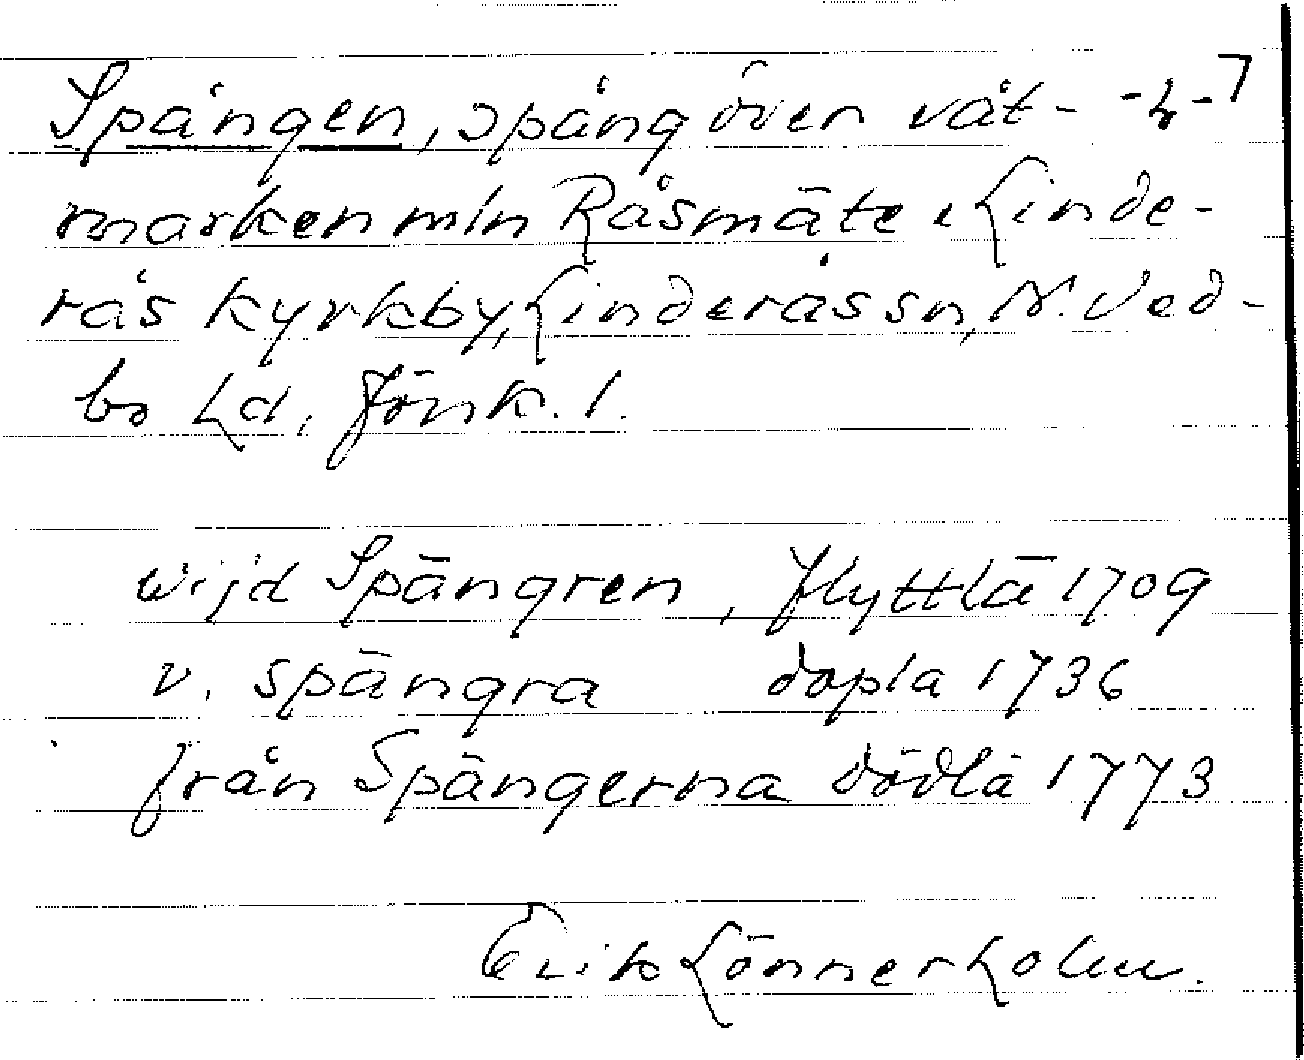 Spången, spång över våt- -h-7
marken mln Råsmäte o Linde-
rås kyrkby, Linderås sn, N. Ved-
bo hd, Jönk. l.
wijd Spängren, flyttlä 1709
v. spängra dopla 1736
från Spängerna dödlä 1773
Erik Lönnerholm.